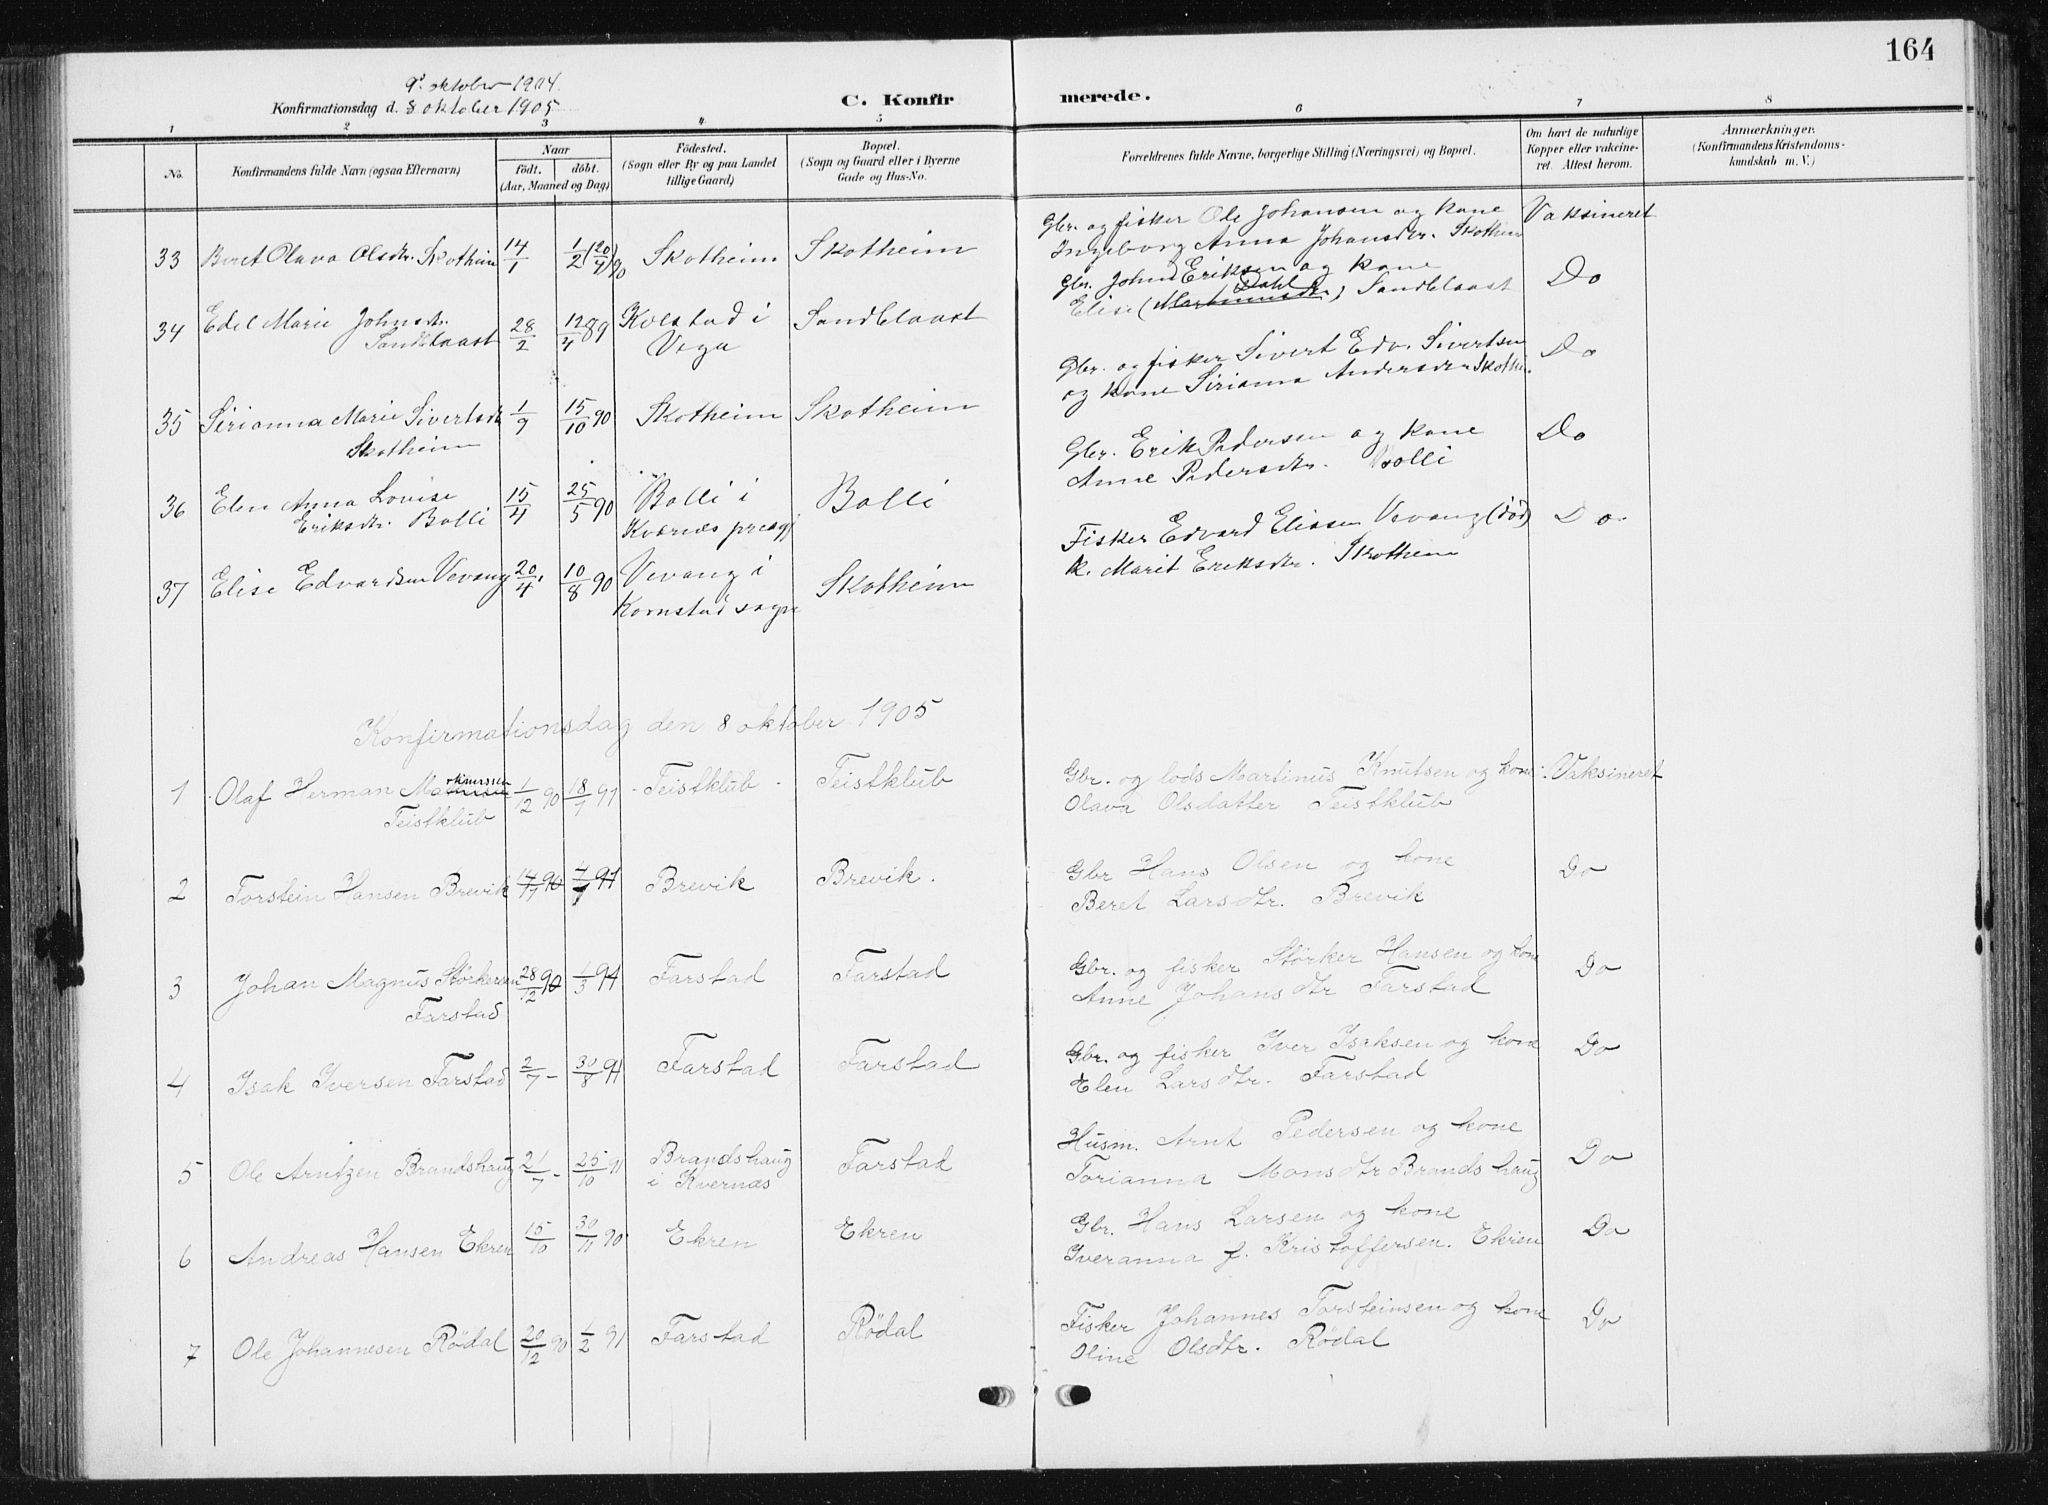 164
9' oktober 1904.
Konfirmationsdag d. 8 oktober 1905
C. Konfir merede.
1 2 3 4 5 6 7 8
No.
Konfirmandens fulde Navn (ogsaa Efternavn)
Naar
födt. döbt.
(Aar, Maaned og Dag)
Födested.
(Sogn eller By og paa Landet
tillige Gaard)
Bopæl.
(Sogn og Gaard eller i Byerne
Gade og Hus-No.
Forældrenes fulde Navne, borgerlige Stilling (Næringsvei) og Bopæl.
Om havt de naturlige
Kopper eller vakcine-
ret. Attest herom.
Anmærkninger.
(Konfirmandens Kristendoms-
kundskab m. V.)
33 Beret Olava Olsdtr. Skotheim 14/1 1/2 (20/4) 90 Skotheim Skotheim
Gbr. og fisker Ole Johansen og kone Vaksineret
Ingeborg Anna Johansdtr. Skotheim
34 Edel Marie Johnsdtr. 28/2 12/4 89 Kolstad i Sandblaast
Sandblaast Vega
Gbr. John Eriksen og kone Do
Dahl
Elise (Martinusdtr.) Sandblaast
35 Sirianna Marie Sivertsdtr 1/9 15/10 90 Skotheim Skotheim
Skotheim
Gbr. og fisker Sivert Edv. Sivertsen Do
og kone Sirianna Andersdtr Skothe.
36 Elen Anna Lovise 15/4 25/5 90 Bolli i Bolli
Eriksdtr. Bolli Kværnes præstgj
Gbr. Erik Pedersen og kone Do
Anne Pedersdtr. Bolli
37 Elise Edvardsen Vevang 20/4 10/8 90 Vevang i Skotheim
Kornstad sogn
Fisker Edvard Eliasen Vevang (död) Do
k. Marit Eriksdtr. Skotheim
Konfirmationsdag den 8 oktober 1905
1 Olaf Herman Martinussen 1/12 90 18/1 91 Teistklub Teistklub
Teistklub
Gbr. og lods Martinus Knutsen og kone Vaksineret
Olava Olsdatter Teistklub
2 Torstein Hansen Brevik 17/11 90 4/1 91 Brevik Brevik.
Gbr Hans Olsen og kone Do
Beret Larsdtr. Brevik
3 Johan Magnus Störkersen 28/12 90 1/3 91 Farstad Farstad
Farstad
Gbr. og fisker Störker Hansen og kone Do
Anne Johansdtr Farstad
4 Isak Iversen Farstad 2/7 - 30/8 91 Farstad Farstad
Gbr. og fisker Iver Isaksen og kone Do
Elen Larsdtr. Farstad
5 Ole Arntzen Brandshaug 21/7 - 25/10 91 Brandshaug Farstad
i Kvernæs
Husm. Arnt Pedersen og kone Do
Torianna Monsdtr Brandshaug
6 Andreas Hansen Ekren 15/10 30/11 90 Ekren Ekren
Gbr. Hans Larsen og kone Do
Iveranna f. Kristoffersen. Ekren
7 Ole Johannesen Rödal 20/12 90 1/2 91 Farstad Rödal
Fisker Johannes Torsteinsen og kone Do
Oline Olsdtr. Rödal